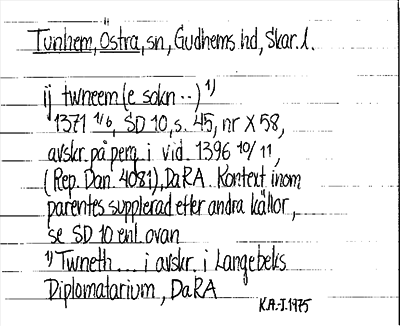 Tunhem, Östra, sn, Gudhems hd, Skar. l.
ij twneem (e sokn ··) 1)
1371 1/6, SD 10, s. 45, nr X 58,
avskr. på perg. i vid. 1396 10/11,
(Rep. Dan. 4081), DaRA. Kontext inom
parentes supplerad efter andra källor,
se SD 10 enl. ovan
1) Twneth ... i avskr. i Langebeks
Diplomatarium, DaRA
K.A.-J. 1975